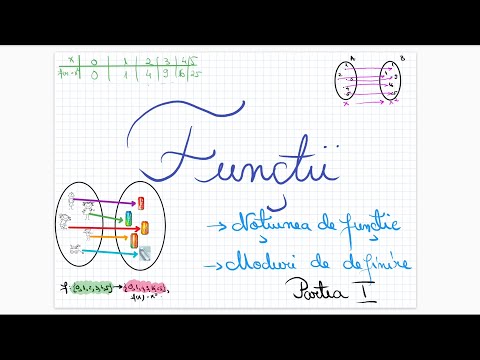 x 0 1 2 3 4 5
f(x)=x² 0 1 4 9 16 25
A B
x → x²
Funcții
→ Noțiunea de funcție
→ Moduri de definire
Partea I
f: {0,1,2,3,4,5} →
f(x) = x²